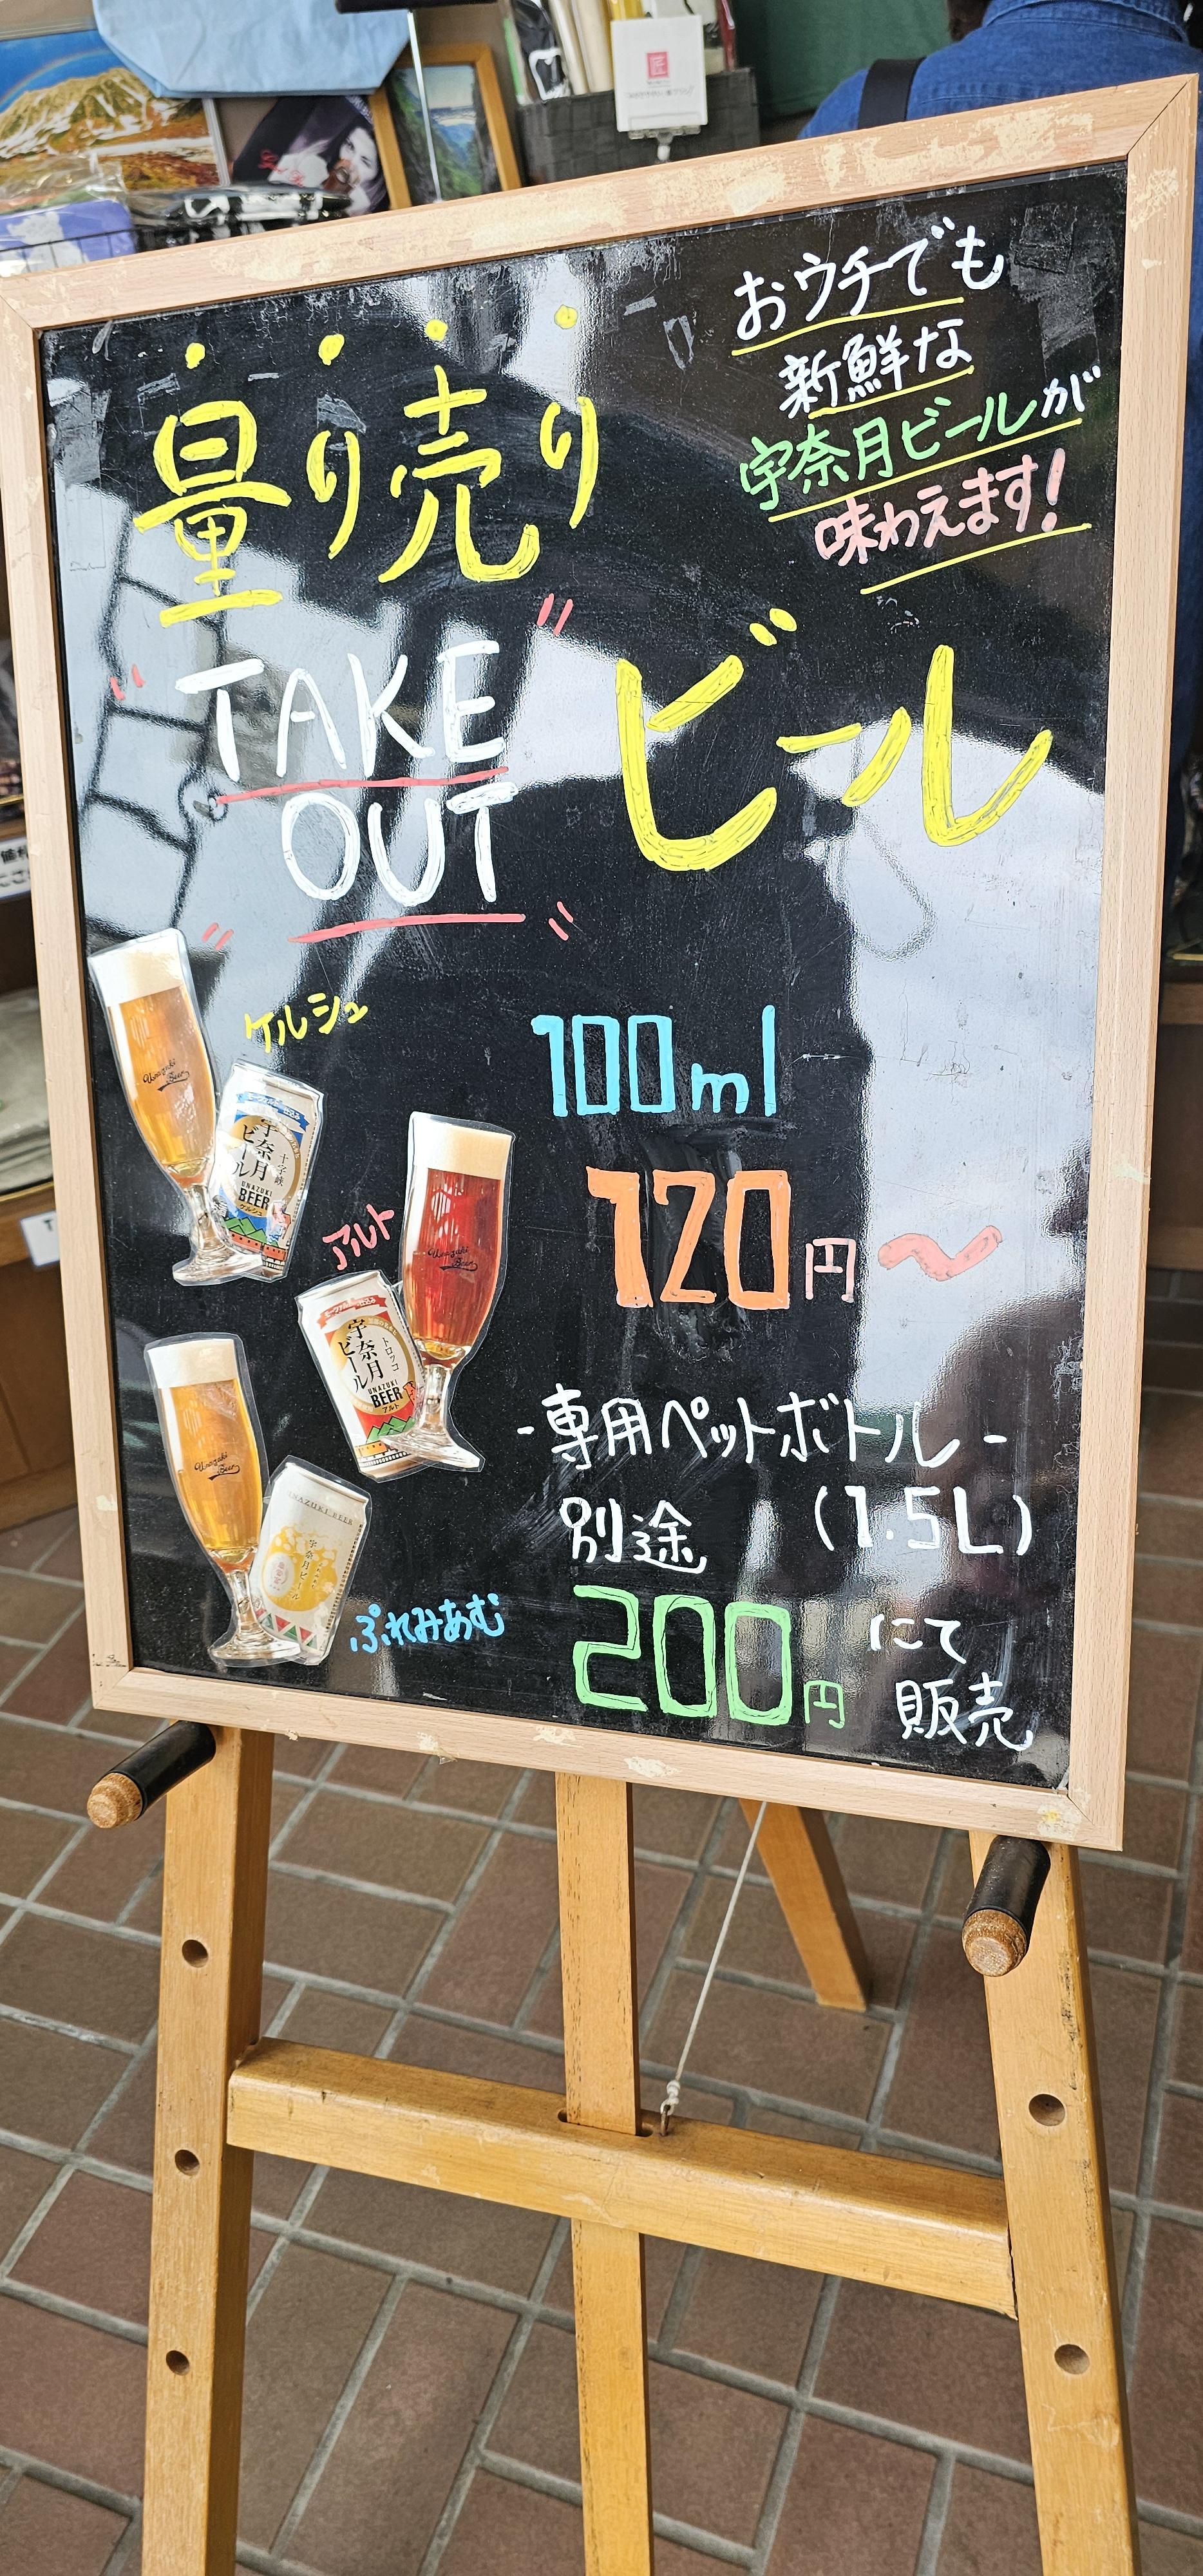 おウチでも
新鮮な
宇奈月ビールが
味わえます!
量り売り
TAKE
OUT
ビール
ケルシュ
Unazuki
Beer
宇奈月
ビール
十字峡
UNAZUKI
BEER
ケルシュ
100ml
120円〜
アルト
Unazuki
Beer
宇奈月
ビール
トロッコ
UNAZUKI
BEER
アルト
Unazuki
Beer
UNAZUKI BEER
宇奈月ビール
ぷれみあむ
-専用ペットボトル-
別途 (1.5L)
200円 にて
販売